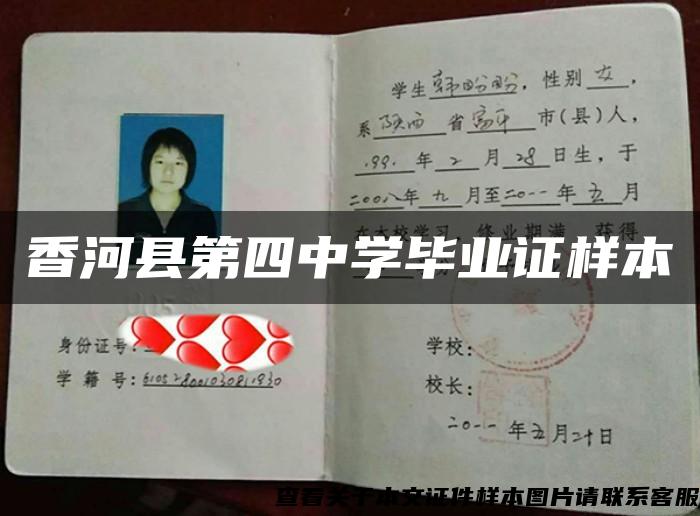 学生韩盼盼，性别女，
系陕西省富平市(县)人，
1991年2月28日生，于
二00八年九月至二0一一年五月
在本校学习，修业期满，获得
香河县第四中学毕业证样本
身份证号:
学籍号:610528001030811930
学校:
校长:
二0一一年五月二十日
查看关于本文证件样本图片请联系客服